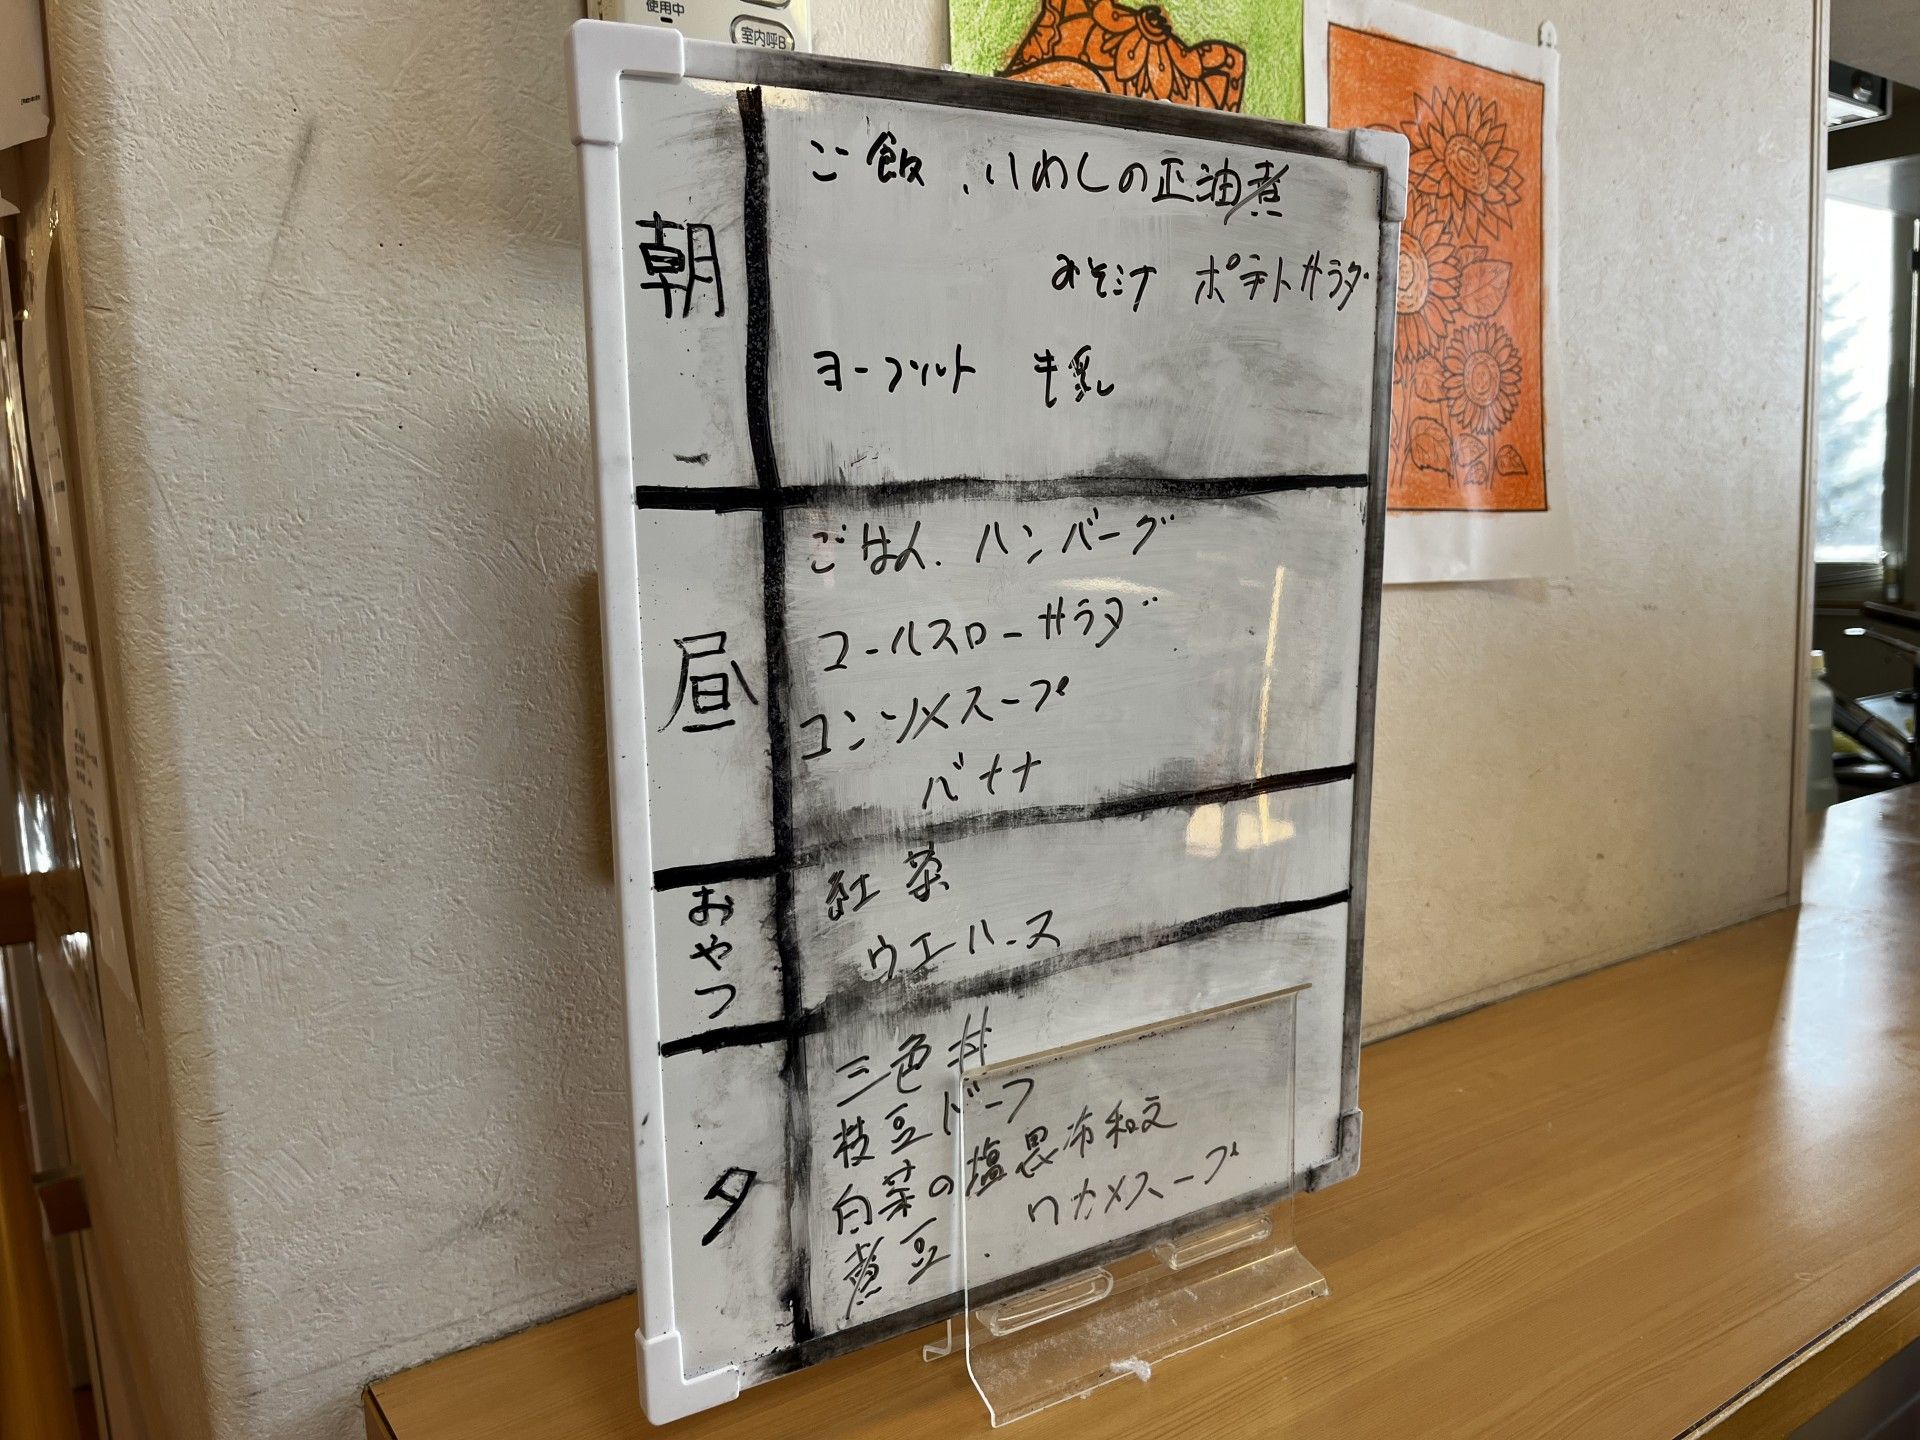 使用中
室内呼B
朝
ご飯、いわしの正油煮
みそ汁 ポテトサラダ
ヨーフルト 牛乳
昼
ごはん、ハンバーグ
コールスローサラダ
コンソメスープ
バナナ
おやつ
紅茶
ウエハース
夕
三色丼
枝豆ビーフ
白菜の塩昆布和え
煮豆、ワカメスープ